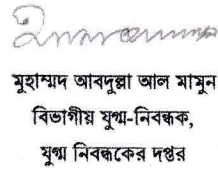 মুহাম্মাদ আবদুল্লা আল মামুন
বিভাগীয় যুগ্ম-নিবন্ধক,
যুগ্ম নিবন্ধকের দপ্তর